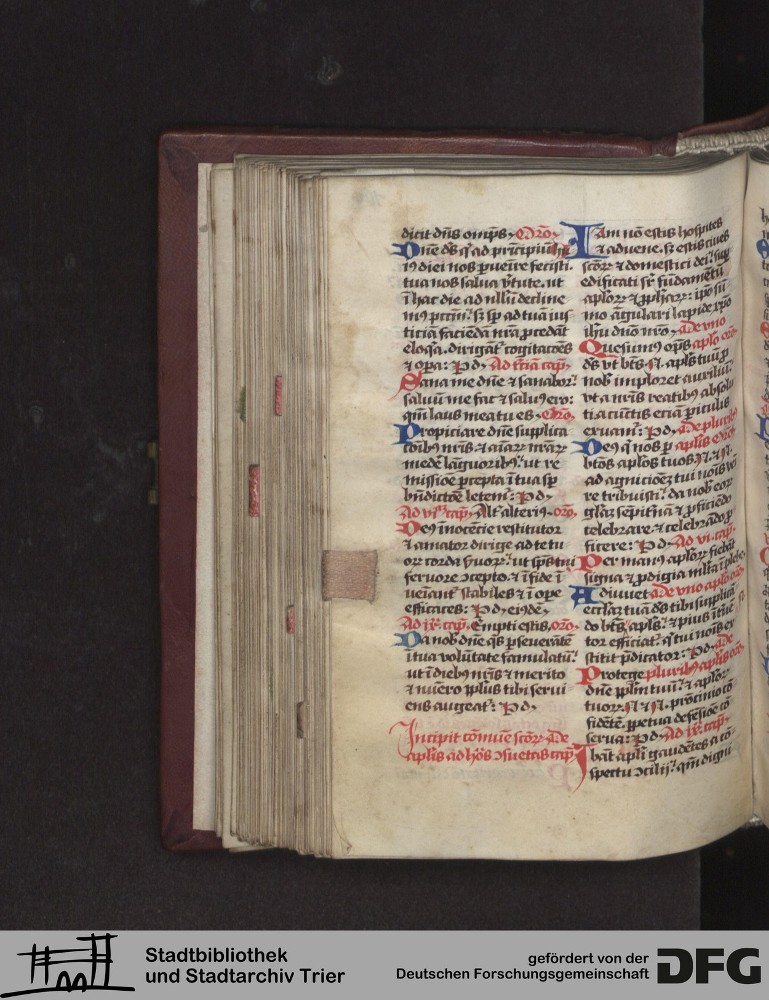 dicit dn̄s omp̄s· Oro·
Dn̄e ds̄ qͥ ad principiū hꝰ
iꝰ diei nos ꝑuēire fecisti·
tua nos salua v̄tute· ut
ī hac die ad nllū decline
mꝰ pctm̄· sꝫ sp̄ ad tuā ius
ticiā faciēdā nr̄a ꝓcedāt
eloq̄a· dirigāt᷑ cogitacōēs
⁊ oꝑa: P d· Ad t̄ciā cap·
Sana me dn̄e ⁊ sanabor:
saluū me fac ⁊ saluꝰ ero:
qm̄ laus mea tu es· Oro·
Propiciare dn̄e supplica
cōibꝰ nr̄is ⁊ aīaꝝ nr̄aꝝ
medē lāguoribꝰ: ut re
missioē ꝑcepta ī tua sp̄
bn̄dictōe letem̄: P d·
Ad vͣꝫ cap· Alt᷑ alteriꝰ· oro·
Deꝰ īnocētie restitutor
⁊ amator dirige ad te tu
oꝝ corda ẜuoꝝ: ut sp̄s tui
feruore ɔcepto· ⁊ ī fide ī
ueniāt᷑ stabiles ⁊ ī oꝑe
efficaces: P d· eiꝰdē·
Ad ix̄· cap· Empti estis· oro·
Da nob̄ dn̄e qs̄ ꝑseuerātē
ī tua volūtate famulatū:
ut ī diebꝰ nr̄is ⁊ merito
⁊ nūero pp̄lus tibi serui
ens augeat᷑: P d·
Incipit cōmūe scōꝝ· De
aplis̄ ad hōs ɔsuetas cap·
Iam nō estis hospites
⁊ aduene· sꝫ estis ciues
scōꝝ ⁊ domestici dei: suꝑ
edificati sr̄ fūdamētū
aplōꝝ ⁊ ꝓphaꝝ: ip̄o sū
mo āgulari lapide xp̄o
ih̄u dn̄o nr̄o· De vno
Quesumꝰ om̄ps aplō oro·
ds̄ vt bt̄s· N· apls̄ tuꝰ ꝓ
nob̄ imploret auxiliū:
vt a nr̄is reatibꝰ absolu
ti a cūctis eciā ꝑiculis
exuam̄: P d· De pluribꝰ
Deꝰ qͥ nos ꝑ aplis̄ oro·
btōs aplōs tuos N· ⁊ N·
ad agnicioēꝫ tui noīs ve
re tribuisti: da nob̄ eoꝝ
gl̄aꝫ sēpit̄nā ⁊ ꝓficiēdo
celebrare ⁊ celebrādo ꝓ
ficere: P d· Ad vi· cap·
Per manꝰ aplōꝝ fiebāt
signa ⁊ ꝓdigia ml̄ta ī plebe·
Adiuuet De vno aplō oro·
ecclāꝫ tuā ds̄ tibi supplicā
do bt̄s· apls̄: ⁊ pius īt̄uē N·
tor efficiat᷑· qͥ tui noīs ex
stitit p̄dicator: P d· De
Protege pluribꝰ aplis̄ oro·
dn̄e pp̄lm̄ tuū: ⁊ aplōꝝ
tuoꝝ· N ⁊ N· pr̄ocinio cō
fidētē· ꝑpetua defēsiōe cō
serua: P d· Ad ix̄· cap·
Ibāt aplī gaudētes a cō
spectu ɔcilij: qm̄ digni
Stadtbibliothek
und Stadtarchiv Trier
gefördert von der
Deutschen Forschungsgemeinschaft
DFG